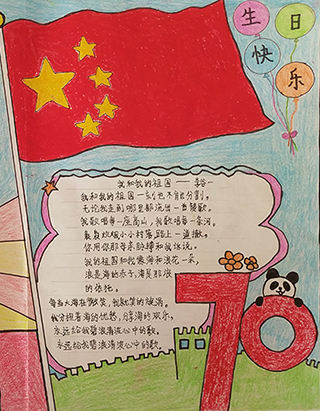 生日
快乐
我和我的祖国——李谷一
我和我的祖国一刻也不能分割,
无论我走到哪里都流出一首赞歌,
我歌唱每一座高山,我歌唱每一条河。
袅袅炊烟小小村落路上一道辙。
你用你那母亲脉搏和我诉说。
我的祖国和我像海和浪花一朵,
浪是海的赤子,海是那浪
的依托。
每当大海在微笑,我就是笑的旋涡,
我分担着海的忧愁,分享海的欢乐,
永远给我碧浪清波心中的歌,
永远给我碧浪清波心中的歌。
70